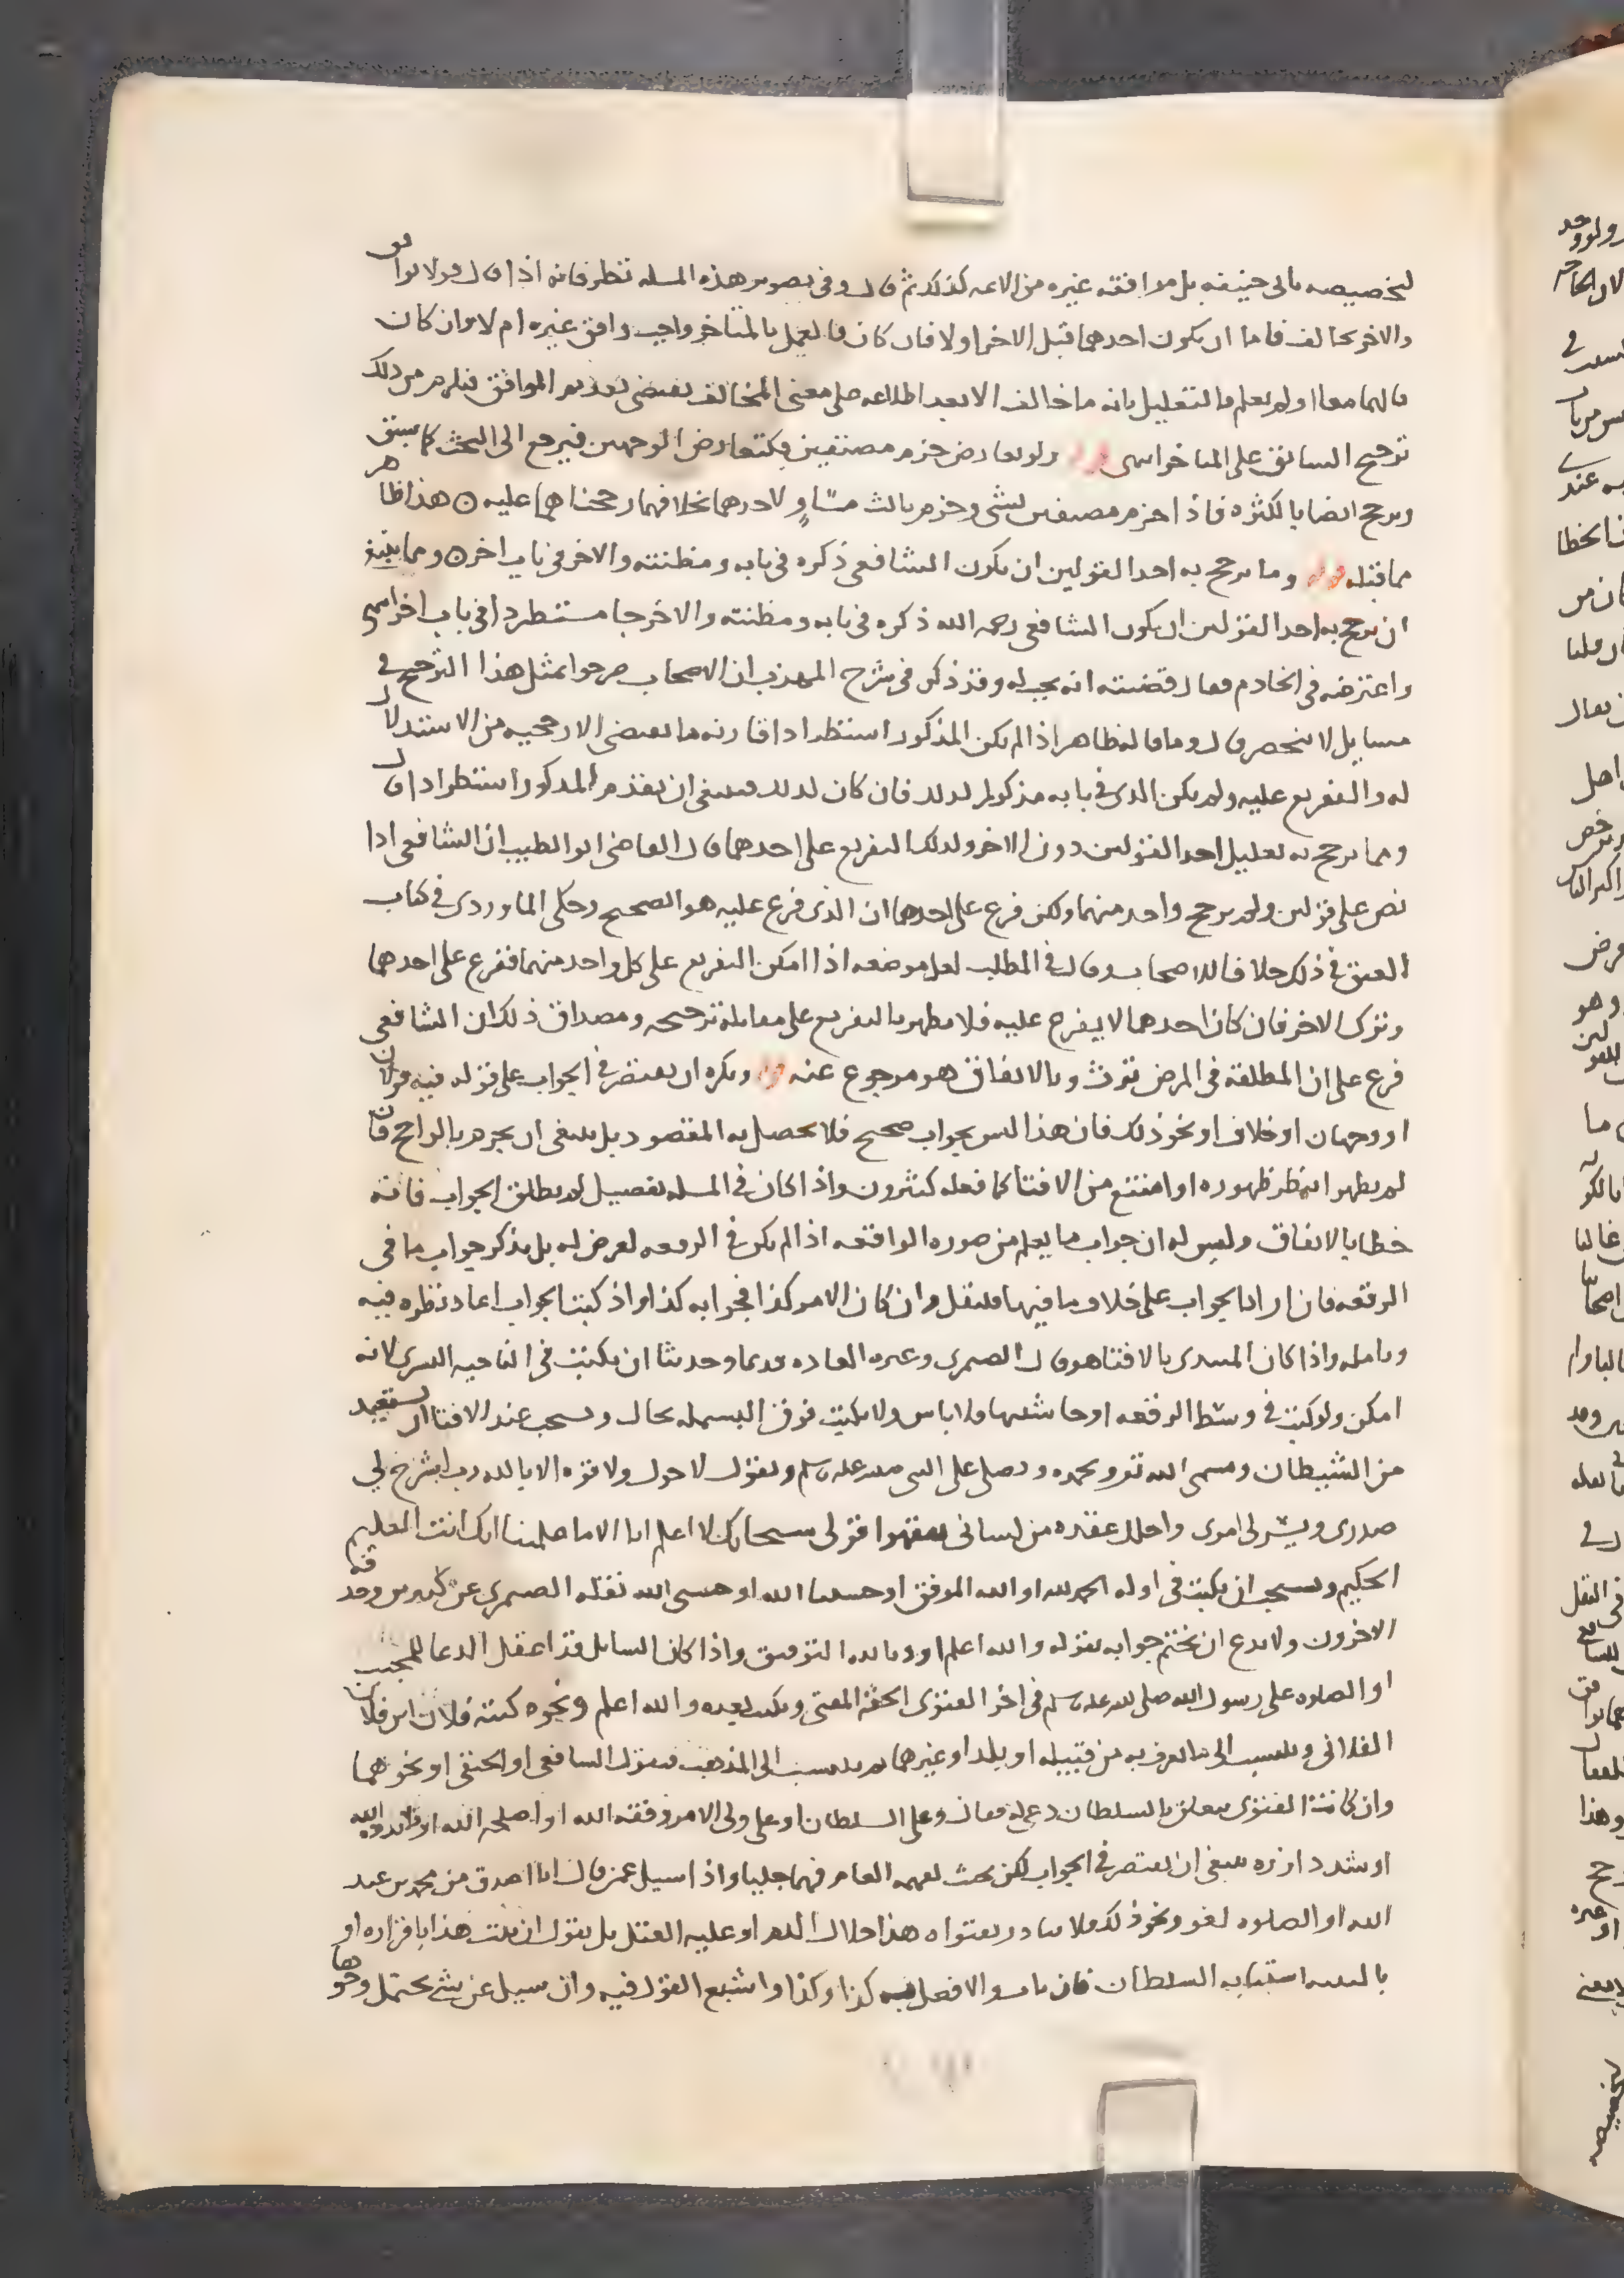 لتخصيصه بابي حنيفه بل موافقته غيره من الائمه كذلك ثم قال وفي تصوير هذه المسله نظر فانه اذا قال قولا يوافق
والاخر يخالف فاما ان يكون احدهما قبل الاخر اولا فان كان فالعمل بالمتاخر واجب وافق غيره ام لا وان كان
قالهما معا او لم يعلم فالتعليل بانه ما خالف الا بعد اطلاعه على معنى المخالف يقتضي تقديم الموافق فيلزم من ذلك
ترجيح السابق على المتاخر اسى ولو تعارض جزم مصنفين فكتعارض الوجهين فيرجع الى البحث كما سبق
ويرجح ايضا بالكثره فاذا جزم مصنفان بشي وجزم ثالث مساو لاحدهما بخلافهما رجحناهما عليه ن هذا ظاهر
مما قبله قوله وما يرجح به احد القولين ان يكون الشافعي ذكره في بابه ومظنته والاخر في باب اخر ن ومما ينبغي
ان يرجح به احد القولين ان يكون الشافعي رحمه الله ذكره في بابه ومظنته والاخر جا مستطردا في باب اخر اسى
واعترضه في الخادم فقال قضيته انه بحث له وقد ذكر في شرح المهذب ان الاصحاب صرحوا بمثل هذا الترجيح في
مسايل لا تنحصر قال وما قاله ظاهر اذا لم يكن المذكور استطرادا قارنه ما يقتضي الارجحيه من الاستدلال
له والتفريع عليه ولم يكن الذي في بابه مذكورا كذلك فان كان كذلك فينبغي ان يقدم المذكور استطرادا قال
ومما يرجح به تعليل احد القولين دون الاخر وكذلك التفريع على احدهما قال القاضي ابو الطيب ان الشافعي اذا
نص على قولين ولم يرجح واحد منهما ولكن فرع على احدهما ان الذي فرع عليه هو الصحيح وحكى الماوردي في كتاب
العتق في ذلك خلافا للاصحاب وقال في المطلب لعل موضعه اذا امكن التفريع على كل واحد منهما ففرع على احدهما
وترك الاخر فان كان احدهما لا يفرع عليه فلا يظهر بالتفريع على مقابله ترجيحه ومصداق ذلك ان الشافعي
فرع على ان المطلقه في المرض ترث وبالاتفاق هو مرجوع عنه قوله ويكره ان يقتصر في الجواب على قوله فيه قولان
او وجهان او خلاف او نحو ذلك فان هذا ليس بجواب صحيح فلا يحصل به المقصود بل ينبغي ان يجزم بالراجح فان
لم يظهر انتظر ظهوره او امتنع من الافتا كما فعله كثيرون واذا كان في المسله تفصيل لم يطلق الجواب فانه
خطا بالاتفاق وليس له ان جواب ما يعلم من صوره الواقعه اذا لم يكن في الرقعه تعرض له بل يذكر جواب ما في
الرقعه فان اراد الجواب على خلاف ما فيها فليقل وان كان الامر كذا فجوابه كذا واذ كتب الجواب اعاد نظره فيه
وتامله واذا كان المبتدي بالافتا هو قال الصيمري وغيره العاده قديما وحديثا ان يكتب في الناحيه اليسرى لانه
امكن ولو كتب في وسط الرقعه او حاشيتها فلا باس ولا يكتب فوق البسمله بحال ويستحب عند الافتا ان يستعيذ
من الشيطان ويسمى الله تعالى ويحمده ويصلي على النبي صلى الله عليه وسلم ويقول لا حول ولا قوه الا بالله رب اشرح لي
صدري ويسر لي امري واحلل عقده من لساني يفقهوا قولي سبحانك لا علم لنا الا ما علمتنا انك انت العليم
الحكيم ويستحب ان يكتب في اوله الحمد لله او الله الموفق او حسبنا الله او حسبي الله نقله الصيمري عن كثيرين وحذفه
الاخرون ولا يدع ان يختم جوابه بقوله والله اعلم او وبالله التوفيق واذا كان السايل قد اغفل الدعا للمجيب
او الصلوه على رسول الله صلى الله عليه وسلم في اخر الفتوى الحقه المفتي ويكتب بعده والله اعلم ونحوه كتبه فلان ابن فلان
الفلاني وينتسب الى ما يعرف به من قبيله او بلد او غيرهما ثم ينتسب الى المذهب فيقول الشافعي او الحنفي او نحوهما
وان كانت الفتوى تتعلق بالسلطان دعى له فقال وعلى السلطان او على ولي الامر وفقه الله او اصلحه الله او سدده الله
او شدد ازره ينبغي ان يقتصر في الجواب لكن بحيث يفهمه العامه فهما جليا واذا سيل عمن قال انا اصدق من محمد بن عبد
الله او الصلوه لغو ونحو ذلك فلا يبادر بقوله هذا حلال الدم او عليه القتل بل يقول ان ثبت هذا باقراره او
بالبينه استتابه السلطان فان تاب والا فعل به كذا وكذا واشبع القول فيه وان سيل عن شي يحتمل وجوها